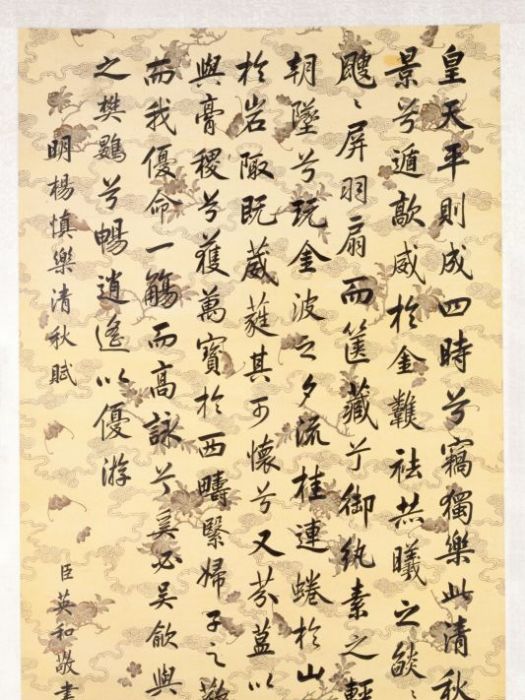 皇天平則成四時兮竊獨樂此清秋
景兮遁歊威於金鞿祛共曦之燄
颸〻屏羽扇而篋藏兮御紈素之輕
朝墜兮玩金波之夕流桂連蜷於山
於岩陬既葳蕤其可懷兮又芬葐以
與膏稷兮獲萬寶於西疇緊婦子之
而我優命一觴而高詠兮奚必吳歈與
之樊鷃兮暢逍遙以優游
明楊慎樂清秋賦
臣英和敬書